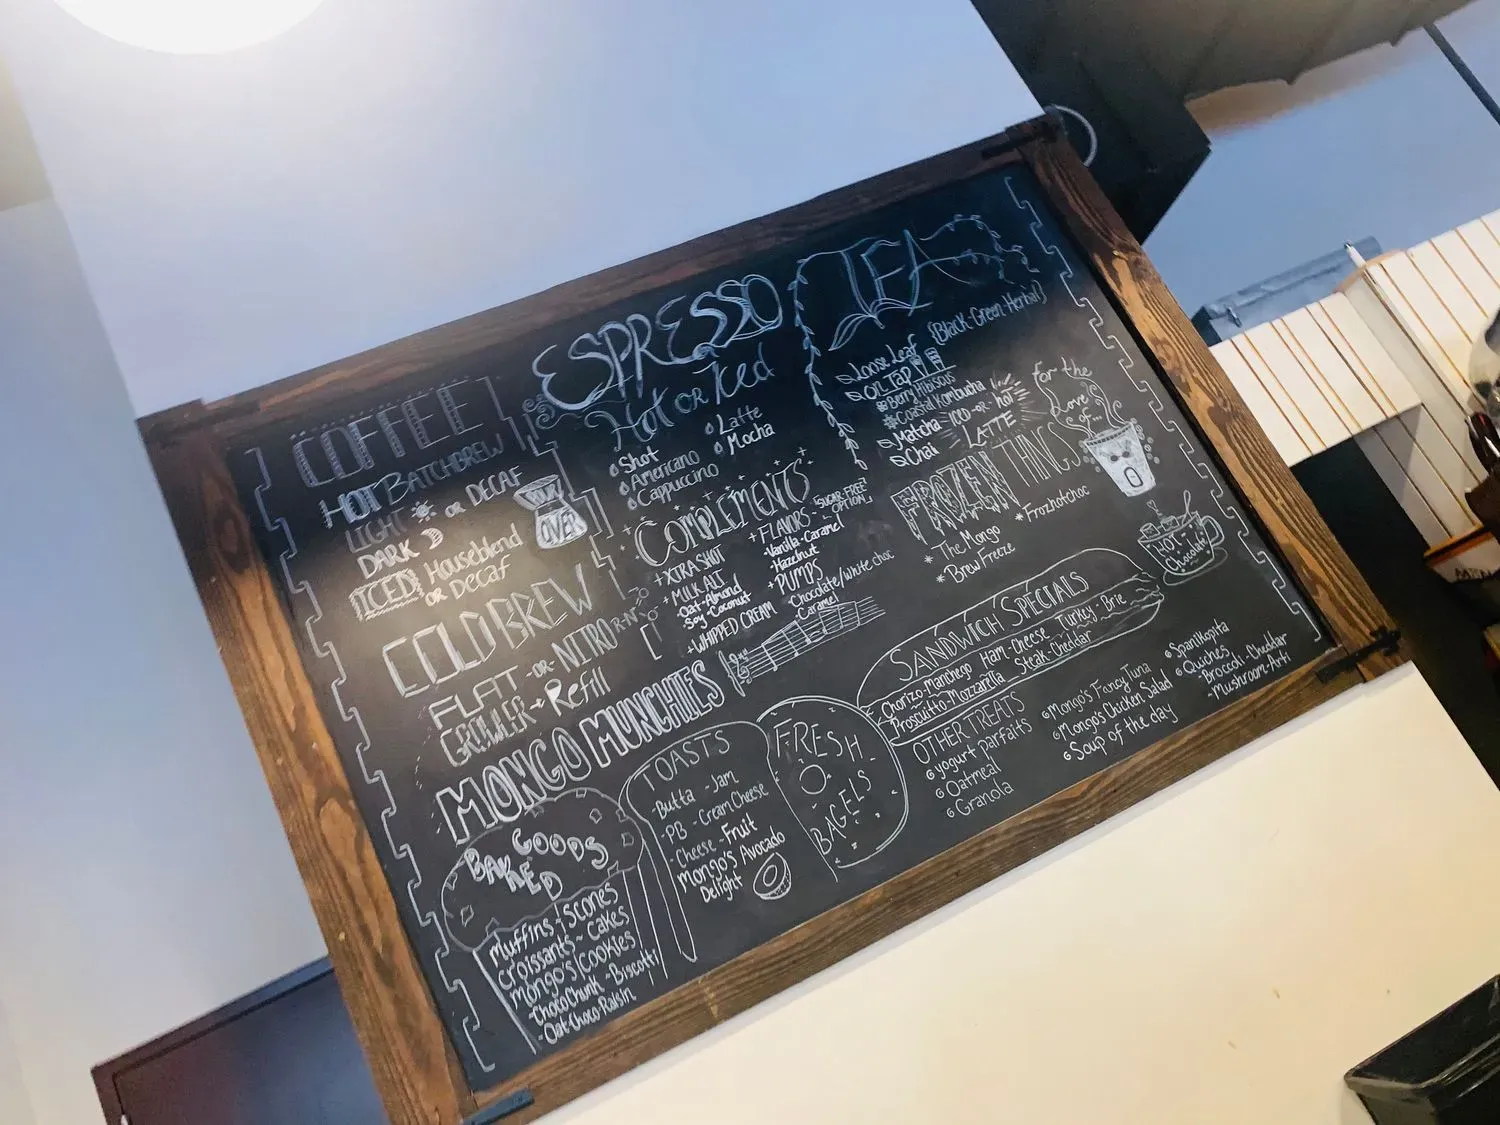 COFFEE
HOT BATCHBREW
LIGHT OR DECAF
DARK
ICED Houseblend
OR Decaf
OVER
COLD BREW
FLAT -OR- NITRO
GROWLER → Refill
ESPRESSO
Hot OR Iced
Shot
Americano
Cappuccino
Latte
Mocha
COMPLEMENTS
+XTRA SHOT
+MILK ALT
Oat-Almond
Soy-Coconut
+WHIPPED CREAM
+FLAVORS- [SUGAR-FREE OPTION]
-Vanilla -Caramel
-Hazelnut
+PUMPS
-Chocolate/white choc
-Caramel
TEA
{Black-Green-Herbal}
Loose Leaf
On TAP
Berry Hibiscus
Coastal Kombucha
Matcha ICED-OR-hot
Chai LATTE
For the
Love
of...
FROZEN THINGS
*The Mongo
*Brew Freeze
*Frozhotchoc
HOT
Chocolate
MONGO MUNCHIES
BAKED GOODS
Muffins~Scones
Croissants~Cakes
Mongo's Cookies
-ChocoChunk -Biscotti
-Oat-Choco-Raisin
TOASTS
-Butta -Jam
-PB -Cream Cheese
-Cheese -Fruit
Mongo's Avocado
Delight
FRESH
BAGELS
SANDWICH SPECIALS
Chorizo-Manchego Ham-Cheese Turkey-Brie
Proscuitto-Mozzarella Steak-Cheddar
OTHER TREATS
yogurt parfaits
Oatmeal
Granola
Mongo's Fancy Tuna
Mongo's Chicken Salad
Soup of the day
Spanikopita
Quiches
-Broccoli-Cheddar
-Mushroom-Arti